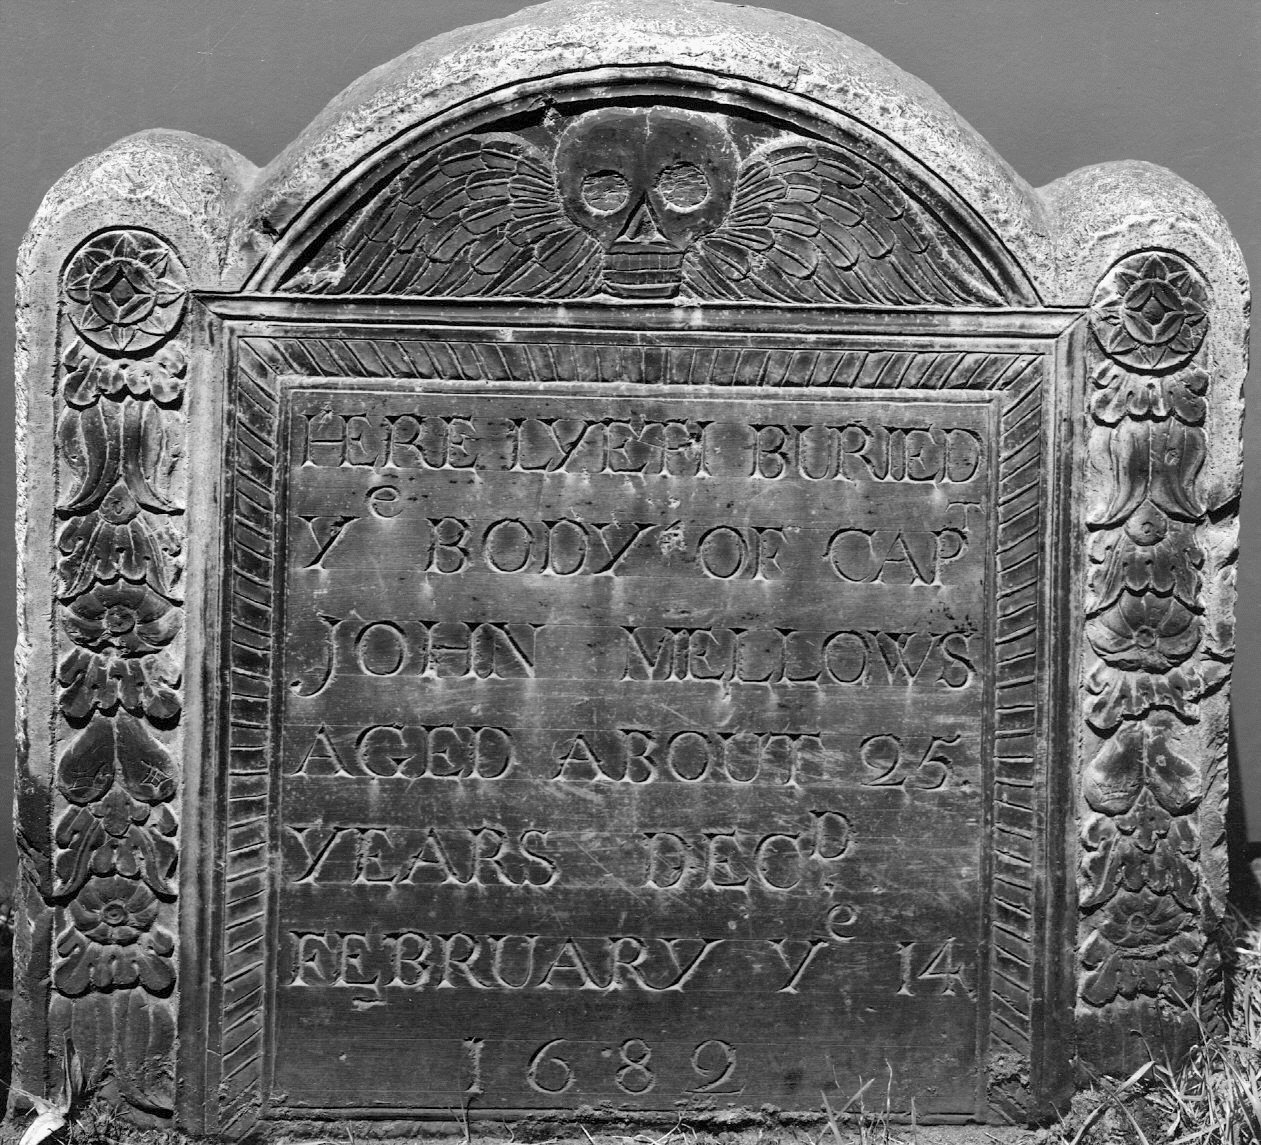 HERE LYETH BURIED
Yᵉ BODY OF CAPᵀ
JOHN MELLOWS
AGED ABOUT 25
YEARS DECᴰ
FEBRUARY Yᵉ 14
1682